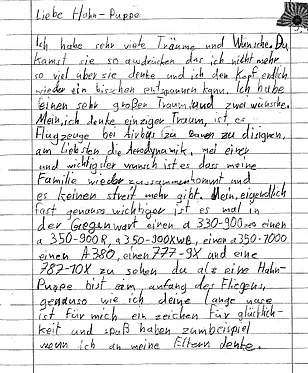 Liebe Hahn-Puppe
Ich habe sehr viele Träume und Wünsche. Du
kanst sie so ausdrücken das ich nicht mehr
so viel über sie denke und ich den Kopf endlich
wieder ein bisschen entspannen kann. Ich habe
einen sehr großen Traum und zwei wünsche.
Mein, ich denke einziger Traum, ist es
Flugzeuge bei Airbus zu bauen zu disignen,
am liebsten die Aerodynamik. mei einer
und wichtigster wunsch ist es dass meine
Familie wieder zusammenkommt und
es keinen streit mehr gibt. Mein, eigendlich
fast genauso wichtiger ist es mal in
der Gegenwart einen a 330-900 einen
a 350-900R, a 350-900XWB, einen a350-1000
einen A380, einen 777-9X und eine
787-10X zu sehen du als eine Hahn-
Puppe bist am, anfang des Fliegens,
genauso wie ich deine lange nase
ist für mich ein zeichen für glücklich-
keit und spaß haben zumbeispiel
wenn ich an meine Eltern denke.